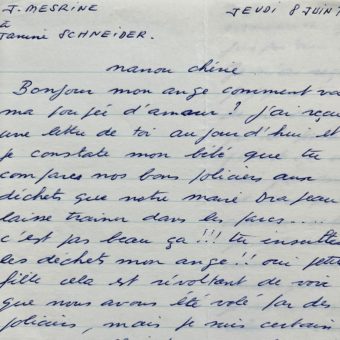 J. MESRINE JEUDI 8 JUIN
à
Janine SCHNEIDER.
manou chérie
Bonjour mon ange comment va
ma poupée d'amour? j'ai reçu
une lettre de toi aujourd'hui et
je constate mon bébé que tu
compares nos bons policiers aux
déchets que notre maire Drapeau
laisse trainer dans les parcs....
c'est pas beau ça!!! tu insultes
les déchets mon ange!! oui petite
fille cela est révoltant de voir
que nous avons été volé par des
policiers, mais je suis certain